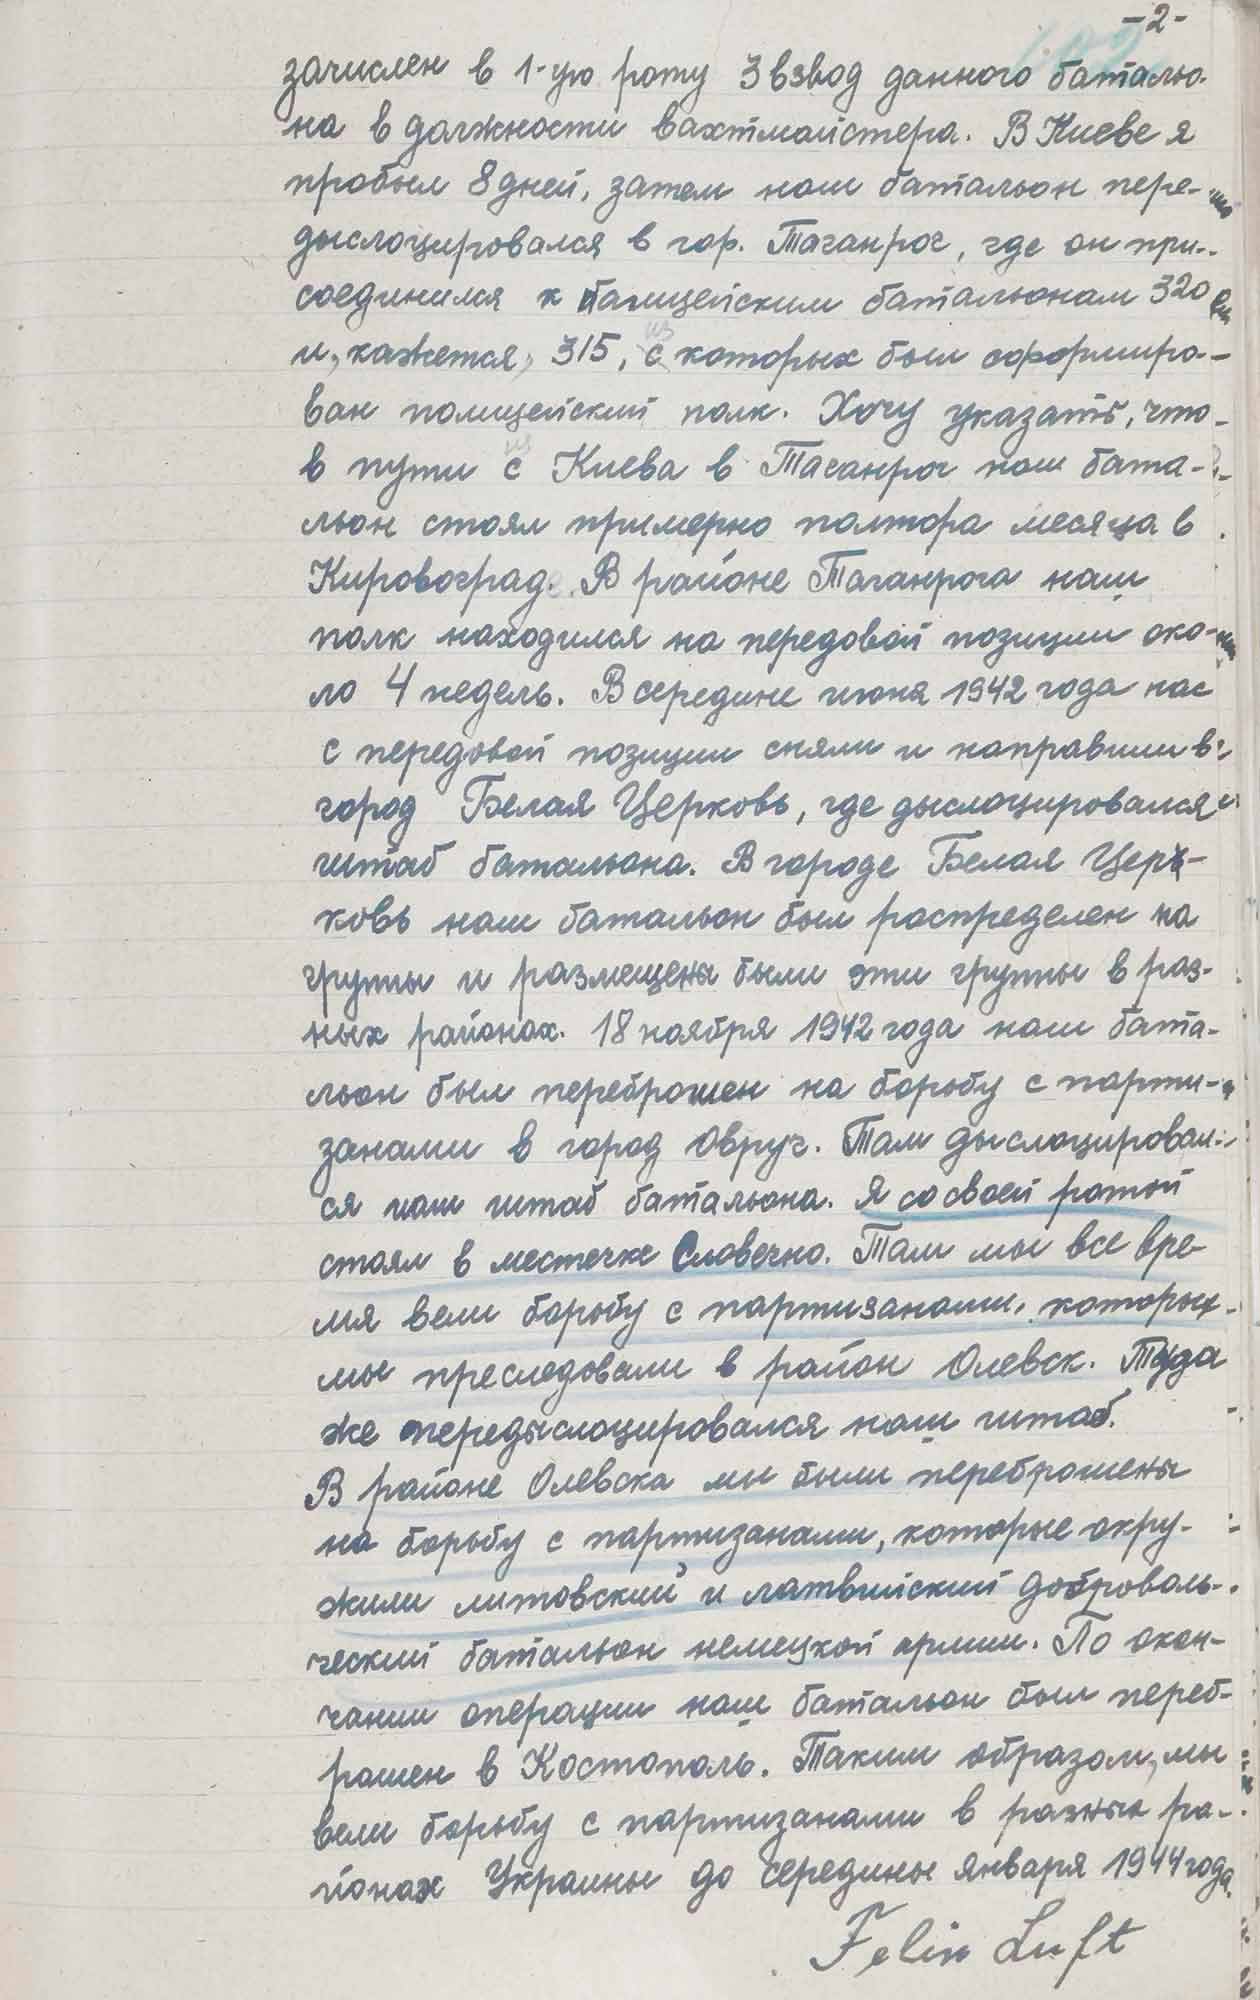 -2-
зачислен в 1-ую роту 3 взвод данного батальо-
на в должности вахтмайстера. В Киеве я
пробыл 8 дней, затем наш батальон пере-
дыслоцировался в гор. Таганрог, где он при-
соединился к полицейским батальонам 320
и, кажется, 315, с которых был сформиро-
из
ван полицейский полк. Хочу указать, что
в пути с Киева в Таганрог наш бата-
из
льон стоял примерно полтора месяца в
Кировограде. В районе Таганрога наш
полк находился на передовой позиции око-
ло 4 недель. В середине июня 1942 года нас
с передовой позиции сняли и направили в
город Белая Церковь, где дыслоцировался
штаб батальона. В городе Белая Цер-
ковь наш батальон был распределен на
группы и размещены были эти группы в раз-
ных районах. 18 ноября 1942 года наш бата-
льон был переброшен на борьбу с парти-
занами в город Овруч. Там дыслоцировал-
ся наш штаб батальона. Я со своей ротой
стоял в местечке Словечно. Там мы все вре-
мя вели борьбу с партизанами, которых
мы преследовали в район Олевск. Туда
же передыслоцировался наш штаб.
В районе Олевска мы были переброшены
на борьбу с партизанами, которые окру-
жили литовский и латвийский доброволь-
ческий батальон немецкой армии. По окон-
чании операции наш батальон был переб-
рошен в Костополь. Таким образом, мы
вели борьбу с партизанами в разных ра-
йонах Украины до середины января 1944 года.
Felix Luft